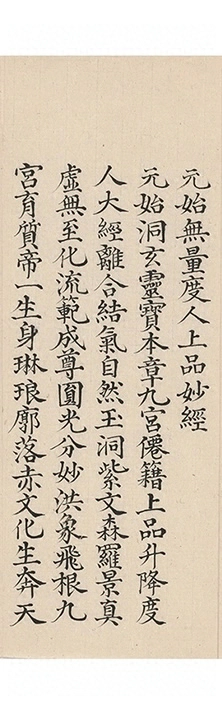 元始無量度人上品妙經
元始洞玄靈寶本章九宮僊籍上品升降度
人大經離合結氣自然玉洞紫文森羅景真
虛無至化流範成尊圓光分妙洪象飛根九
宮育質帝一生身琳琅廓落赤文化生奔天